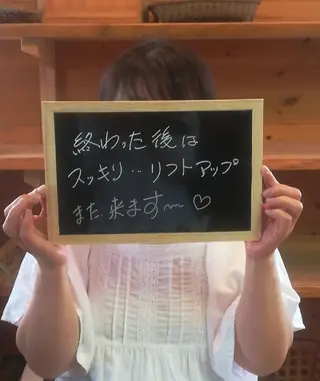 終わった後は
スッキリ…リフトアップ
また、来ます〜♡